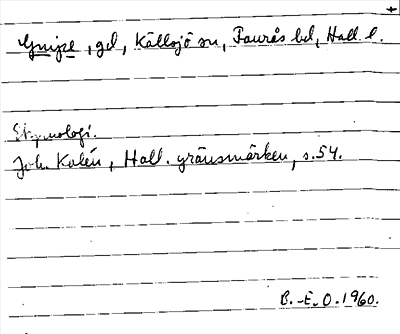 Gnipe, gd, Källsjö sn, Faurås hd, Hall. l.
Etymologi.
Joh. Kalén, Hall. gränsmärken, s. 54.
B.-E. O. 1960.